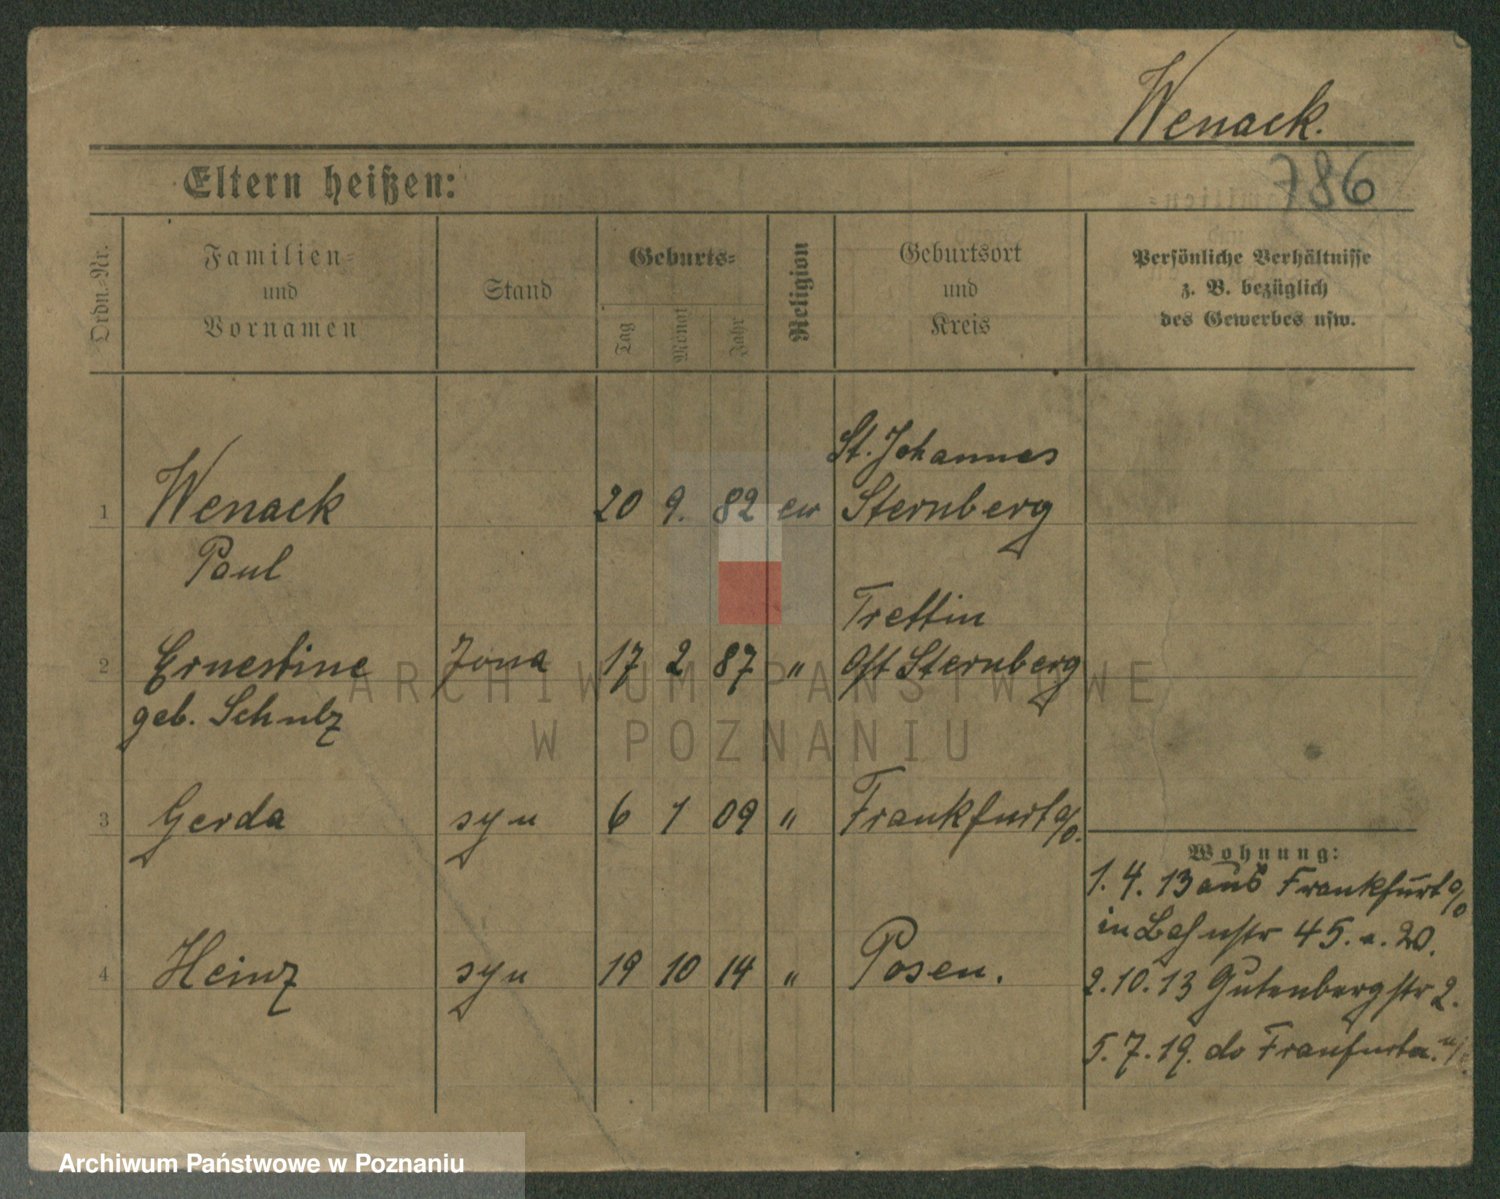 Wenack.
786
Eltern heißen:
Ordn.-Nr.
Familien-
und
Vornamen
Stand
Geburts-
Tag
Monat
Jahr
Religion
Geburtsort
und
Kreis
Persönliche Verhältnisse
z. B. bezüglich
des Gewerbes usw.
St. Johannes
1 Wenack 20 9. 82 ew Sternberg
Paul
Trettin
2 Ernestine 17 2 87 " Ost Sternberg
geb. Schulz
3 Gerda 6 1 09 " Frankfurt a/O.
Wohnung:
1. 4. 13 aus Frankfurt a/O
in Bahnstr 45. 20.
4 Heinz 19 10 14 " Posen.
2. 10. 13 Gutenbergstr 2.
5. 7. 19.
ARCHIWUM PAŃSTWOWE
W POZNANIU
Archiwum Państwowe w Poznaniu